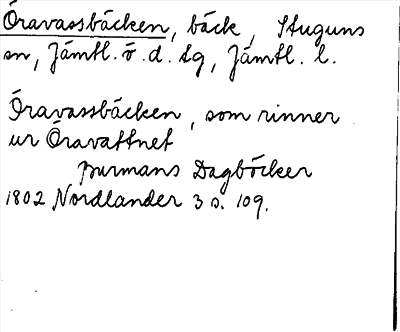 Öravassbäcken, bäck, Stuguns
sn, Jämtl. ö. d. tg, Jämtl. l.
Öravassbäcken, som rinner
ur Öravattnet
Burmans Dagböcker
1802 Nordlander 3 s. 109.